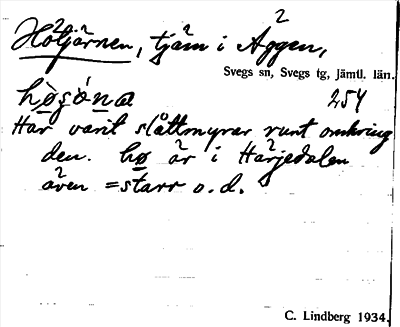 Hötjärnen, tjärn i Äggen,
Svegs sn, Svegs tg, jämtl. län.
254
Har varit slåttmyrar runt omkring
den. hø är i Härjedalen
även = starr o.d.
C. Lindberg 1934.